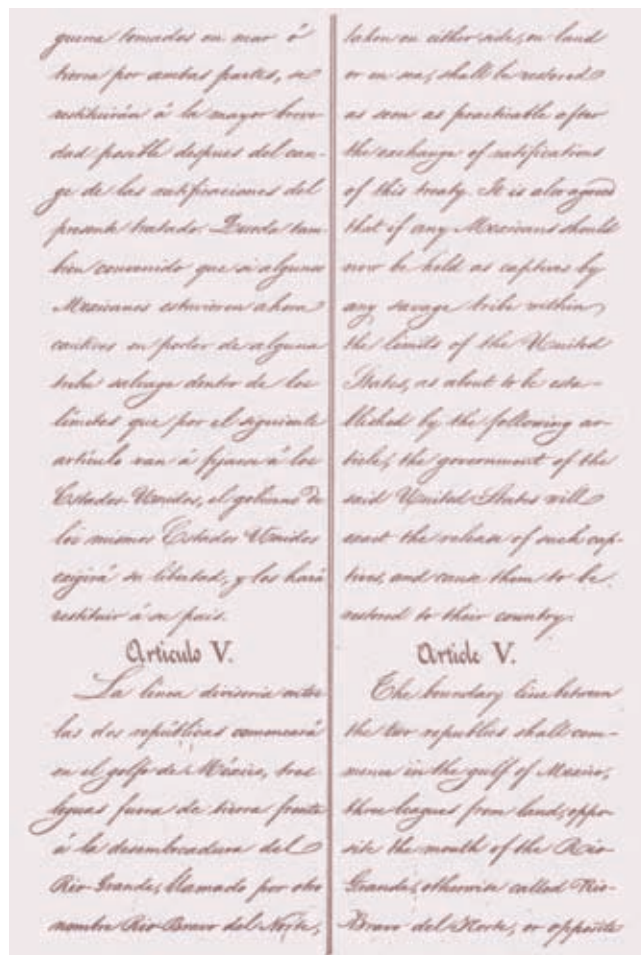 guerra tomados en mar ó
tierra por ambas partes, se
restituirán á la mayor breve
dad posible despues del can-
ge de las ratificaciones del
presente tratado. Queda tam-
bien convenido que si algunos
Mexicanos estuvieren ahora
cautivos en poder de alguna
tribu salvage dentro de los
límites que por el siguiente
artículo van á fijarse á los
Estados Unidos, el gobierno de
los mismos Estados Unidos
exigirá su libertad, y los hará
restituir á su pais.
Articulo V.
La linea divisoria entre
las dos repúblicas comenzará
en el golfo de México, tres
leguas fuera de tierra frente
á la desembocadura del
Rio Grande, llamado por otro
nombre Rio Bravo del Norte,
taken on either side, on land
or on sea, shall be restored
as soon as practicable after
the exchange of ratifications
of this treaty. It is also agreed
that if any Mexicans should
now be held as captives by
any savage tribe within
the limits of the United
States, as about to be esta-
blished by the following ar-
ticle, the government of the
said United States will
exact the release of such cap-
tives, and cause them to be
restored to their country.
Article V.
The boundary line between
the two republics shall com-
mence in the gulf of Mexico,
three leagues from land, oppo-
site the mouth of the Rio
Grande, otherwise called Rio
Bravo del Norte, or opposite